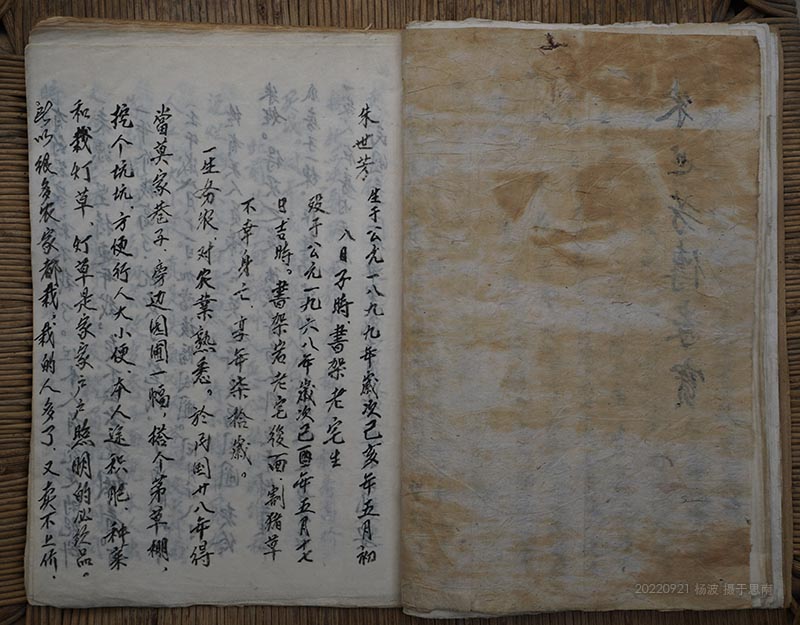 朱世芳，生于公元一八九九年歲次己亥年五月初
八日子時書架老宅生
殁于公元一九六八年歲次己酉年五月十七
日吉時。書架岩老宅後面，割猪草
不幸身亡，享年柒拾歲。
一生务农，对农業熟悉。於民国廿八年得
當莫家巷子，旁边园圃一幅，搭个茅草棚，
挖个坑坑，方便行人大小便，本人逗积肥，种菜
和栽灯草，灯草是家家户户照明的必须品。
所以很多农家都栽，栽的人多了，又卖不上价，
20220921 杨波 摄于思南